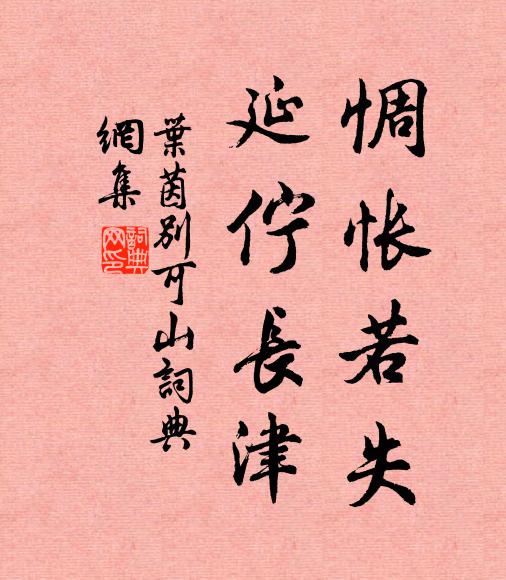 惆怅若失
延伫長津
葉茵别可山詞典
網集
詞典
网印